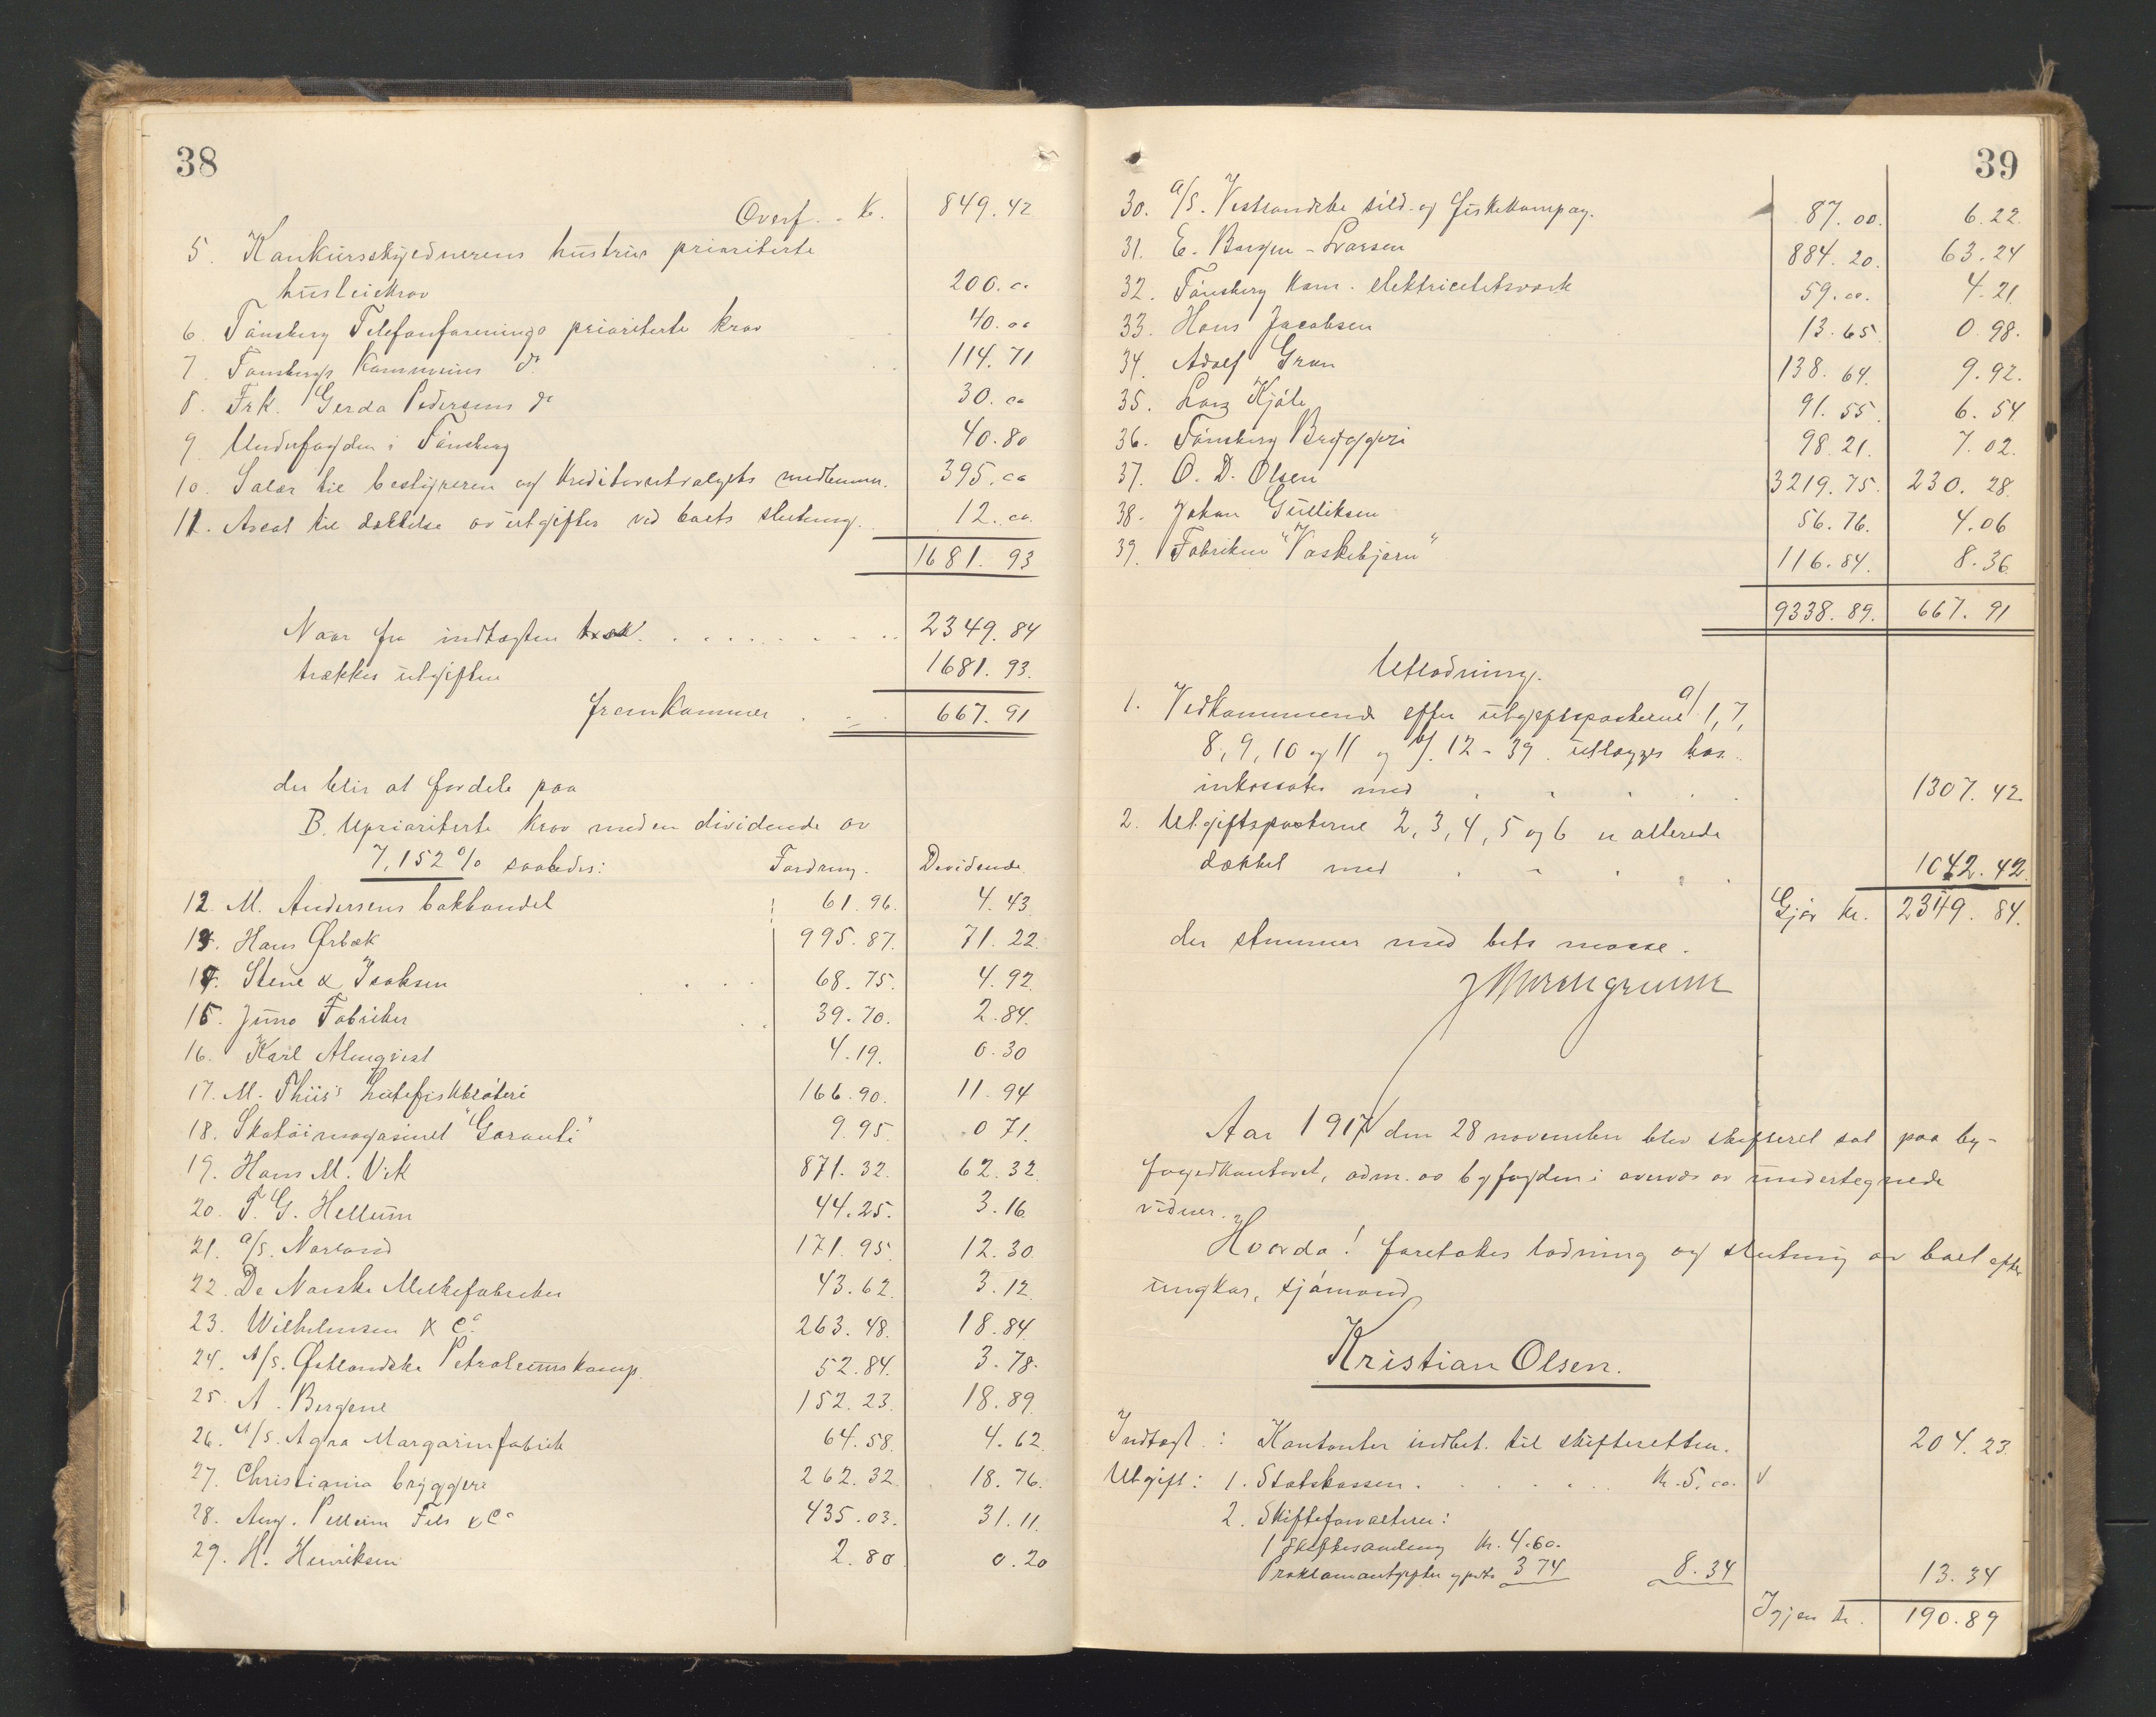 38
Overf. . kr. 849.42
5. Konkursskyldnerens hustrus prioriterte
husleiekrav 200.00
6. Tønsberg Telefonforenings prioriterte krav 40.00
7. Tønsbergs Kommunes do 114.71
8. Frk. Gerda Pedersens do 30.00
9. Underfogden i Tønsberg 40.80
10. Salær til bestyreren og kreditorutvalgets medlemmer. 395.00
11. Avsat til dækkelse av utgifter ved boets slutning. 12.00
1681.93
Naar fra indtægten . . . . . . . 2349.84
trækkes utgiften 1681.93.
fremkommer . . . 667.91
der blir at fordele paa
B. Uprioriterte krav med en dividende av
7,152 % saaledes: Fordring. Dividende.
12. M. Andersens bokhandel 61.96. 4.43
13. Hans Ørbæk 995.87. 71.22.
14. Stene & Isaksen 68.75. 4.92.
15. Juno Fabriker 39.70. 2.84.
16. Karl Almqvist 4.19. 0.30
17. M. Thiis's lutefiskbløteri 166.90. 11.94
18. Skotøimagasinet "Garanti" 9.95. 0 71.
19. Hans M. Vik 871.32. 62.32.
20. T. G. Hellum 44.25. 3.16
21. a/s. Norland 171.95. 12.30.
22. De Norske Melkefabriker 43.62. 3.12.
23. Wilhelmsen & Co. 263.48. 18.84.
24. A/s. Østlandske Petroleumskomp. 52.84. 3.78.
25. A. Bergene 152.23. 18.89.
26. A/s. Agra Margarinfabrik 64.58. 4.62.
27. Christiania bryggeri 262.32. 18.76.
28. Aug. Pellerin Fils & Co 435.03. 31.11.
29. H. Henriksen 2.80. 0.20
39
30. a/s. Vestlandske sild- og fiskekompag. 87.00. 6.22.
31. E. Borgen-Larsen 884.20. 63.24
32. Tønsberg kom. elektricitetsverk 59.00. 4.21.
33. Hans Jacobsen 13.65. 0.98.
34. Adolf Gran 138.64. 9.92.
35. Lars Kjøle 91.55. 6.54
36. Tønsberg Bryggeri 98.21. 7.02.
37. O. D. Olsen 3219.75. 230.28.
38. Johan Gulliksen 56.76. 4.06
39. Fabriken "Vaskebjørn" 116.84. 8.36
9338.89. 667.91
Utlodning.
1. Vedkommende efter utgiftsposterne a/ 1, 7,
8, 9, 10 og 11 og b/. 12-39. utlægges hos
inkassator med . . . . . 1307.42
2. Utgiftsposterne 2, 3, 4, 5 og 6 er allerede
dækket med . . . . . 1042.42.
Gjør kr. 2349.84.
der stemmer med bets masse.
Aar 1917 den 28 november blev skifteret sat paa by-
fogedkontoret, adm. av byfogden i overvær av undertegnede
vidner.
Hvorda! foretokes lodning og slutning av boet efter
ungkar, sjømand
Kristian Olsen.
Indtægt: Kontanter indbet. til skifteretten. 204.23.
Utgift: 1. Statskassen. . . . . . kr. 5.00. V
2. Skifteforvalteren:
1 Skiftesamling kr. 4.60.
Proklamautgifter og porto 3 74 8.34 13.34
Igjen kr. 190.89